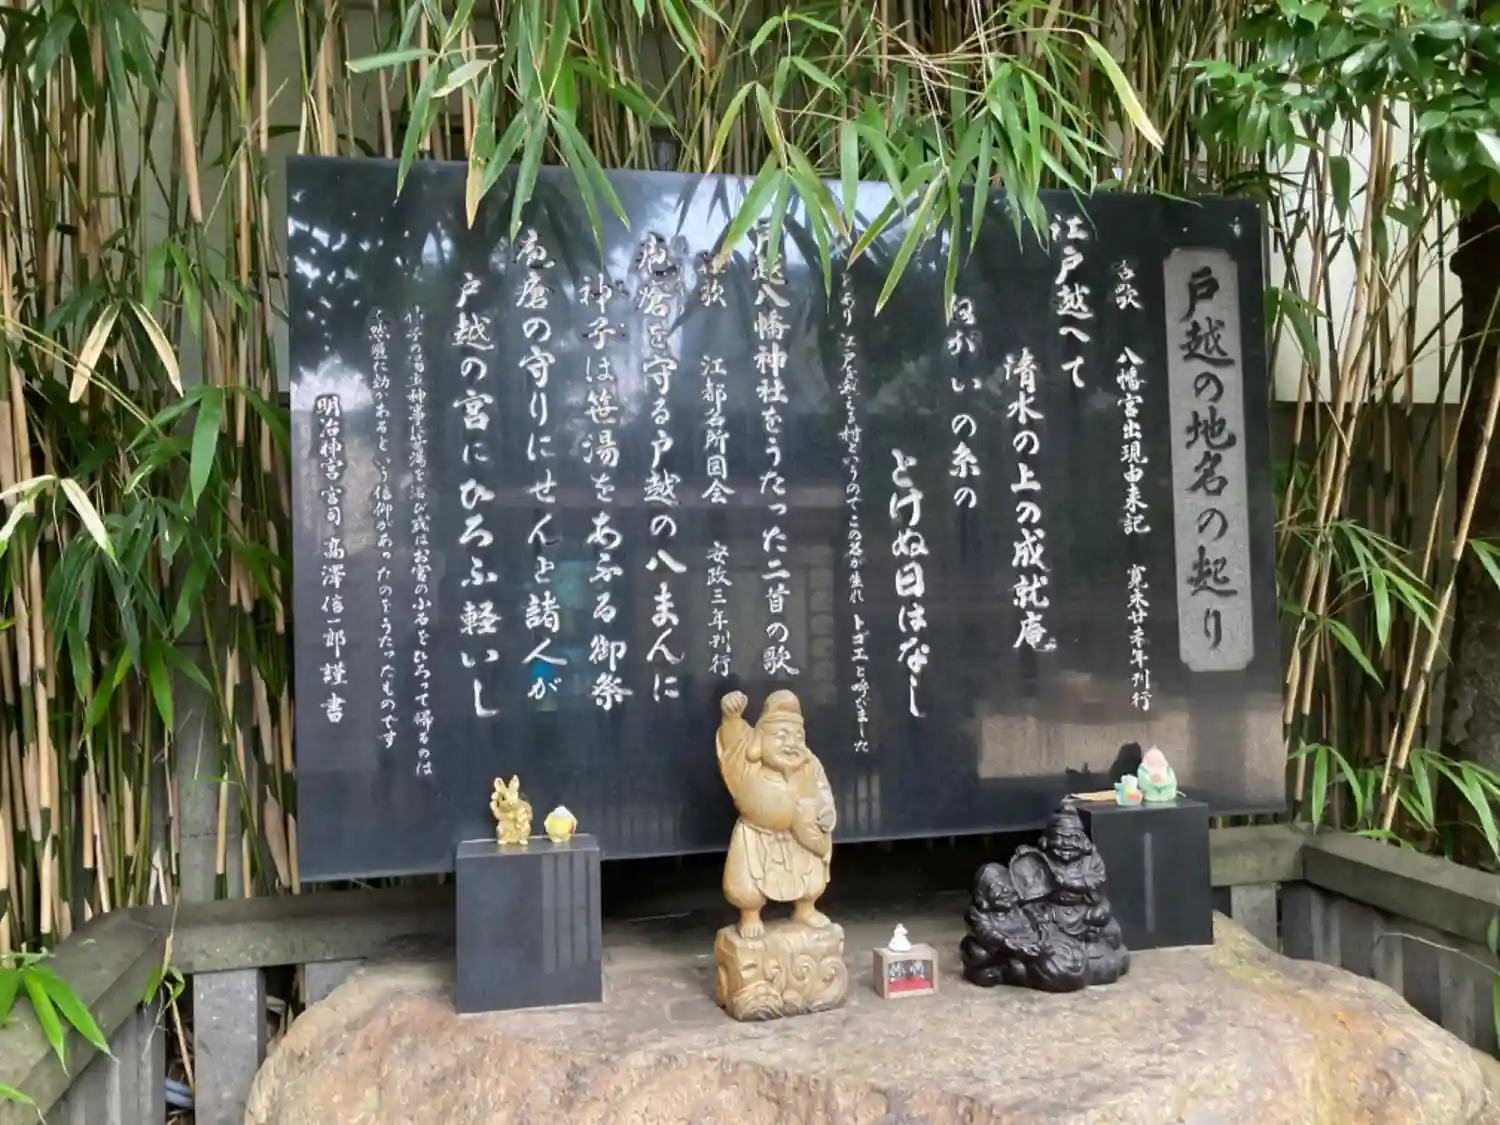 戸越の地名の起り
古歌 八幡宮出現由来記 寛永廿末年刊行
江戸越へて
清水の上の成就庵
ねがいの糸の
とけぬ日はなし
とあり 江戸を越える村というのでこの名が生れ トゴエと呼びました
戸越八幡神社をうたった二首の歌
歌 江都名所図会 安政三年刊行
疱瘡を守る戸越の八まんに
神子は笹湯をあふる御祭
疱瘡の守りにせんと諸人が
戸越の宮にひろふ軽いし
神子の湯立神事に笹湯を浴び或はお宮の小石をひろって帰るのは
疱瘡に効があるという信仰があったのをうたったものです
明治神宮宮司 高澤信一郎 謹書